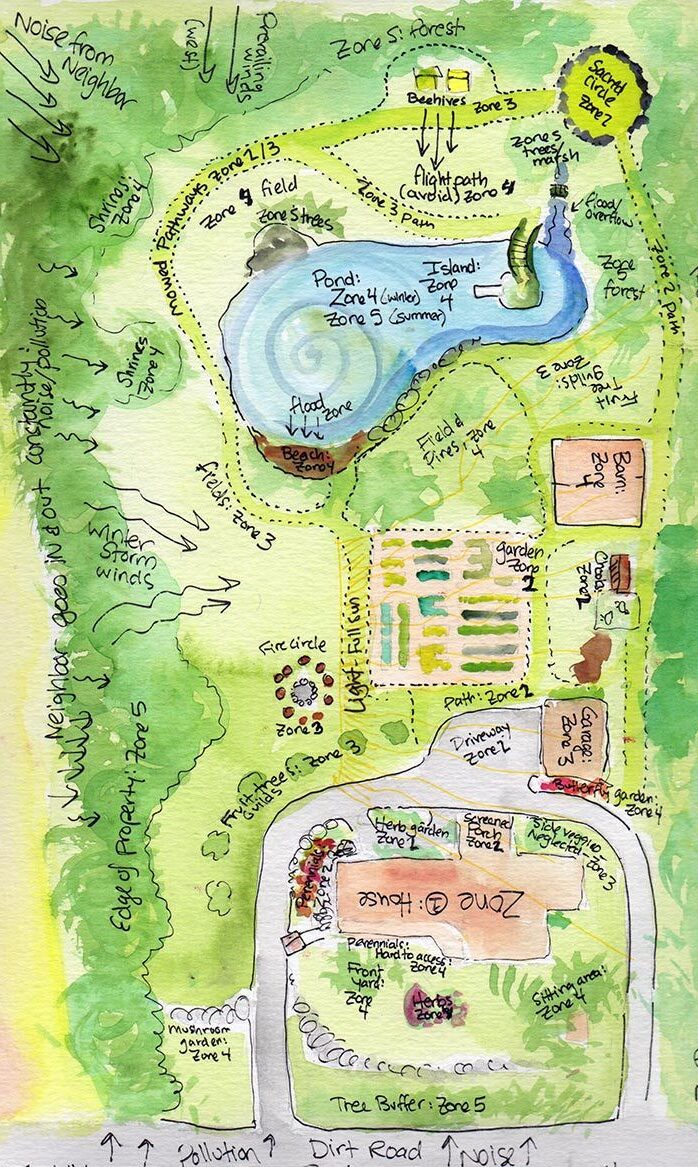 Noise from
Neighbor
Prevailing
winds
(west)
Zone 5: forest
Beehives
Zone 3
Sacred
Circle
Zone 2
Mowed Pathways Zone 2/3
flight path
(avoid) Zone 4
Zone 5
trees/
marsh
flood/
overflow
Shrines:
Zone 4
Zone 4 field
Zone 3 path
Zone 5 trees
Zone
5
forest
Zone 2 path
Pond:
Zone 4 (winter)
Zone 5 (summer)
Island:
Zone
4
Shrines
Zone 4
Neighbor goes in & out constantly:
Noise/pollution
Fruit
Tree
guilds:
Zone 3
flood
zone
Beach:
Zone 4
Field &
Pines: Zone
4
Barn:
Zone
4
fields: Zone 3
Winter
Storm
winds
garden
Zone
2
Zone 2
Light - Full sun
Fire Circle
Zone 3
Path: Zone 2
Driveway
Zone 2
Garage:
Zone 3
Butterfly garden:
Zone 4
Fruit trees: Zone 3
Guilds
Edge of Property: Zone 5
Herb garden
Zone 1
Screened
Porch
Side veggies -
Neglected - Zone 3
Perennials
Zone 2
Zone ①: House
Perennials:
Hard to access:
Zone 4
Front
yard:
Zone
4
Herbs
Sitting area:
Zone 4
Mushroom
garden:
Zone 4
Tree Buffer: Zone 5
Pollution
Dirt Road
Noise